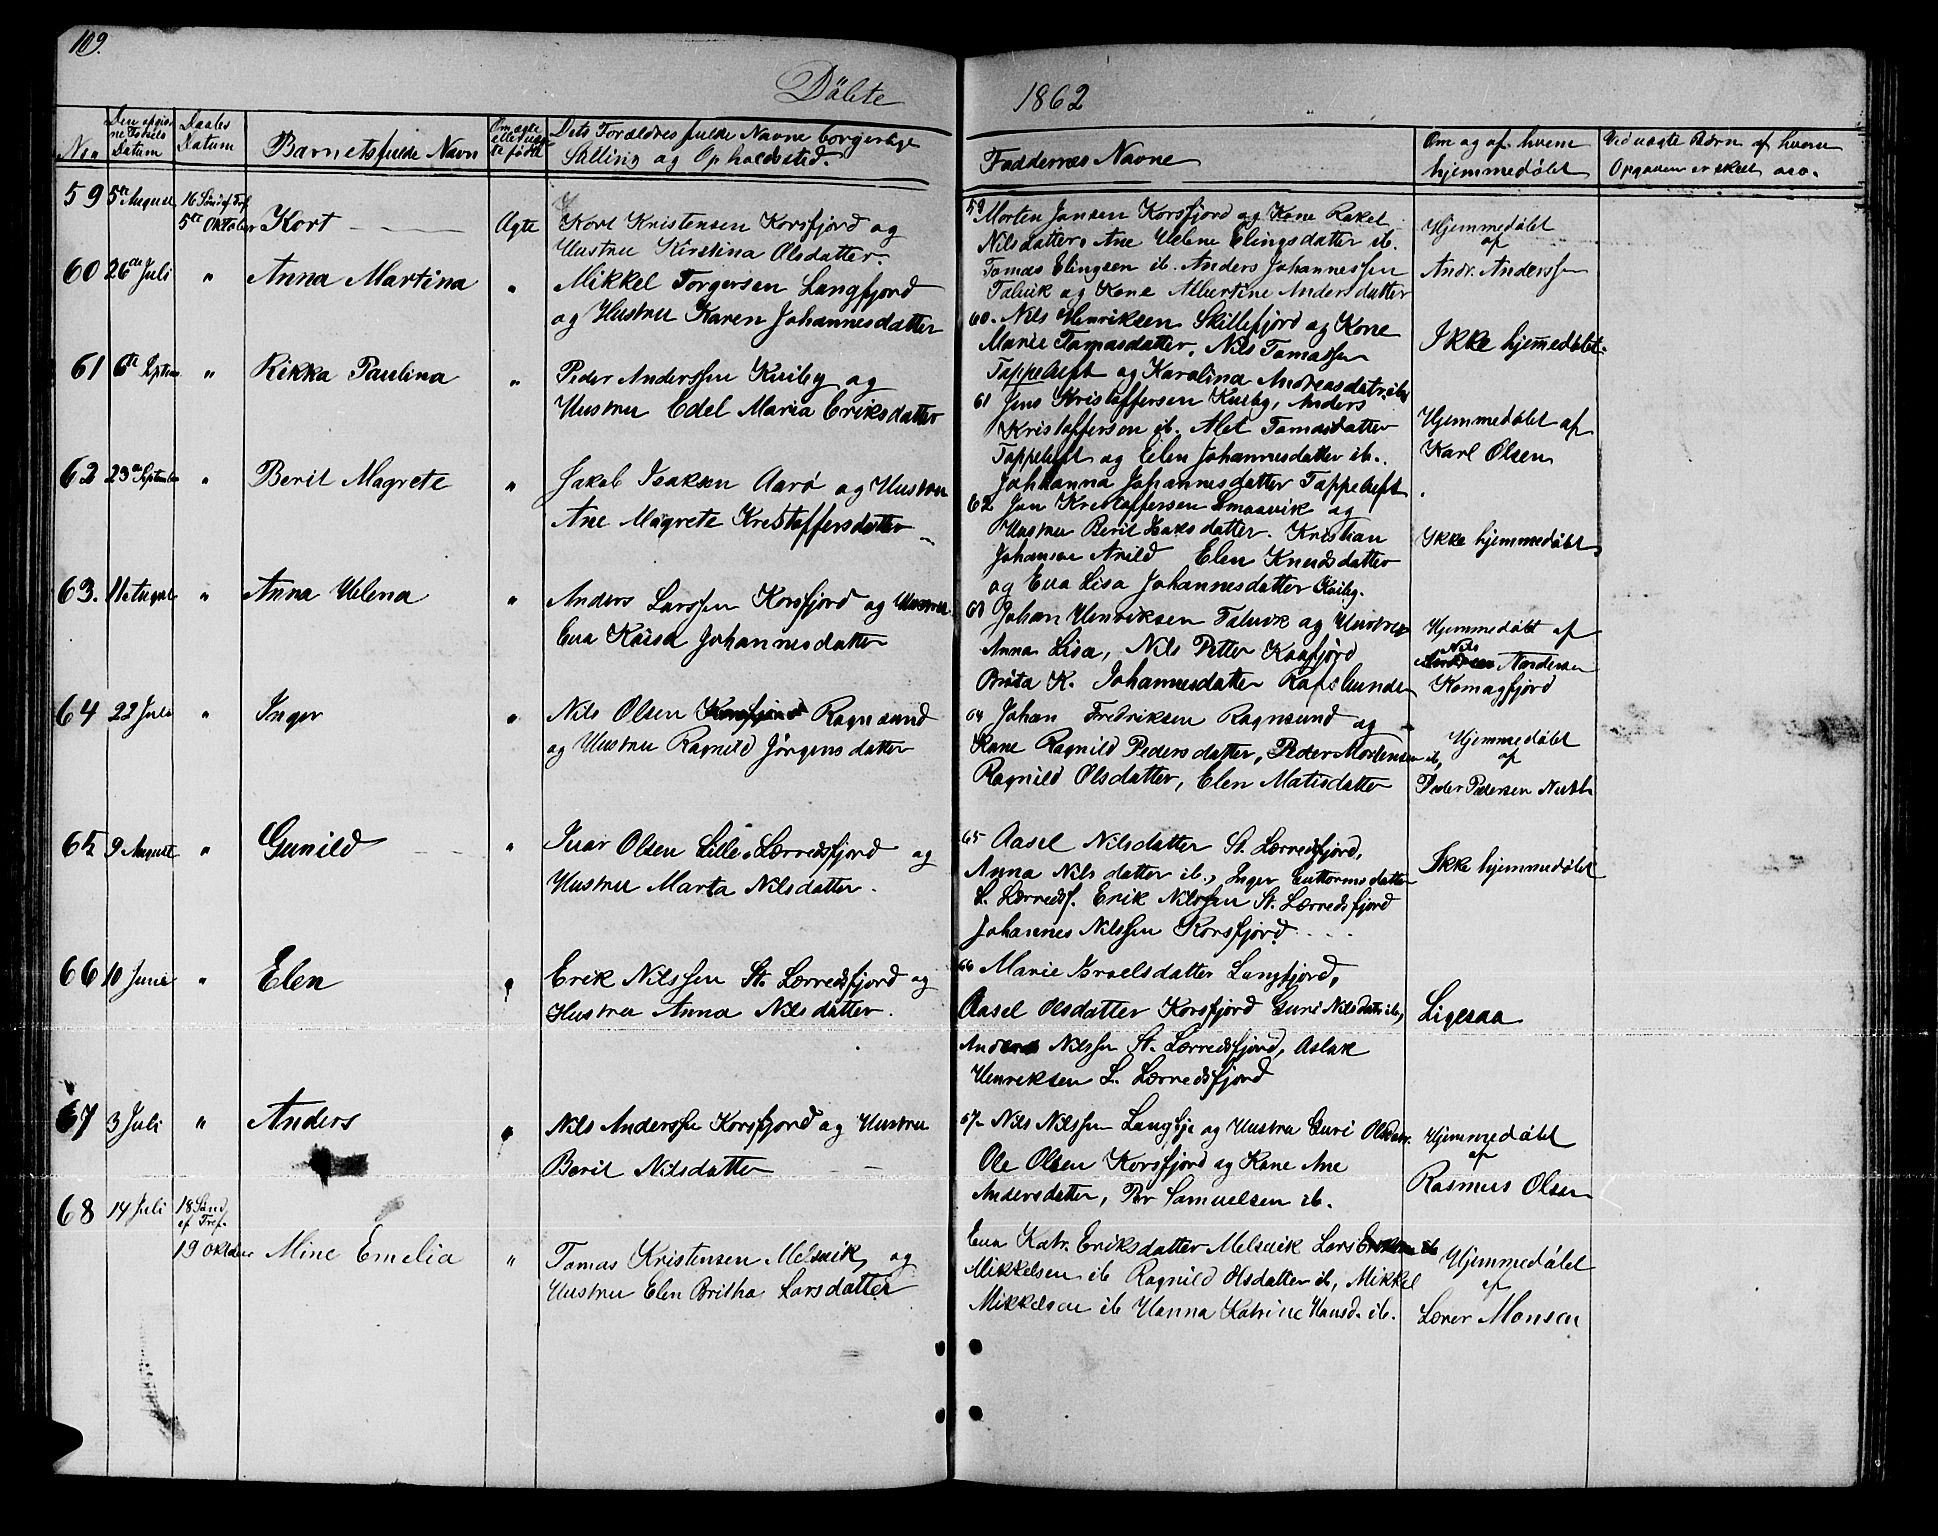 109.
Döbte 1862
No.
Den opgivne Fødsels Datum
Daabs Datum
Barnets fulde Navn
Om ægte eller uægte født
Dets Forældres fulde Navne borgerlige
Stilling og Opholdssted.
Faddernes Navne
Om og af hvem
hjemmedøbt
Ved uægte Børn af hvem
Opgaven er skeet
59 5te August 16 Sönd ef Tref.
5te Oktober Kort Ægte
Kort Kristensen Korsfjord og
Hustru Kirstina Olsdatter.
59 Morten Jansen Korsfjord og Kone Rakel
Nilsdatter, Ane Helene Elingsdatter ib.
Tomas Elingsen ib. Anders Johannessen
Talvik og Kone Albertine Andersdatter
Hjemmedøbt
af
Andr. Anderssen
60 26de Juli " Anna Martina "
Mikkel Torgersen Langfjord
og Hustru Karen Johannesdatter
60. Nils Henriksen Skillefjord og Kone
Marie Tomasdatter, Nils Tomassen
Tappeluft og Karolina Andreasdatr. ib
Ikke hjemmedøbt.
61 6te Septem " Rikka Paulina "
Peder Anderssen Kviby og
Hustru Edel Maria Eriksdatter
61 Jens Kristoffersen Kviby, Anders
Kristofferson ib. Alet Tomasdatter
Tappeluft og Elen Johannesdatter ib.
Johhanna Johannesdatter Tappeluft
Hjemmedøbt af
Karl Olsen
62 23de September " Berit Magrete "
Jakob Isaksen Aarø og Hustru
Ane Magrete Kristoffersdatter
62 Jon Kristoffersen Smaavik og
Hustru Berit Isaksdatter. Kristian
Johansen Arild Elen Knudsdatter
og Eva Lisa Johannesdatter Kviby.
Ikke hjemmedøbt
63. 11 August " Anna Helena "
Anders Larssen Korsfjord og Hustru
Eva Kaisa Johannesdatter
63 Johan Henriksen Talvik og Hustru
Anna Lisa, Nils Petter Kaafjord
Brita K. Johannesdatter Rafsbunden
Hjemmedøbt af
Nils
Komagfjord
64 22 Juli " Inger "
Nils Olsen Korsfjord Rognsund
og Hustru Ragnild Jørgensdatter
64 Johan Fredriksen Rognsund og
Kone Ragnild Pedersdatter, Peder Mortensen ib,
Ragnild Olsdatter, Elen Matisdatter
Hjemmedøbt
af
Peder Pedersen
65 9 August " Gunild "
Ivar Olsen Lille Lerredsfjord og
Hustru Marta Nilsdatter.
65 Aasel Nilsdatter St. Lerredsfjord,
Anna Nilsdatter ib., Inger Guttormsdatter
L. Lerredsf. Erik Nilssen St. Lerredsfjord
Johannes Nilssen Korsfjord
Ikke hjemmedøbt
66 10 Junie " Elen "
Erik Nilssen St. Lerredsfjord og
Hustru Anna Nilsdatter.
66 Marie Israelsdatter Langfjord,
Aasel Olsdatter Korsfjord Guri Nilsdatr ib,
Anders Nilssen St. Lerredsfjord, Aslak
Henriksen L. Lerredsfjord
Ligesaa
67 3 Juli " Anders "
Nils Anderssen Korsfjord og Hustru
Berit Nilsdatter
67 Nils Nilssen Langfje og Hustru Guri Olsdatr.
Ole Olsen Korsfjord og Kone Ane
Andersdatter, Per Samuelsen ib.
Hjemmedøbt
af
Rasmus Olsen
68 14 Juli 18 Sönd.
ef Tref.
19 Oktober Mine Emelia "
Tomas Kristensen Melsvik, og
Hustru Elen Britha Larsdatter
Eva Katr. Eriksdatter Melsvik Lars
Mikkelsen ib Ragnild Olsdatter ib, Mikkel
Mikkelsen ib Hanna Katrine Hansd. ib.
Hjemmedøbt
af
Lærer Monsen